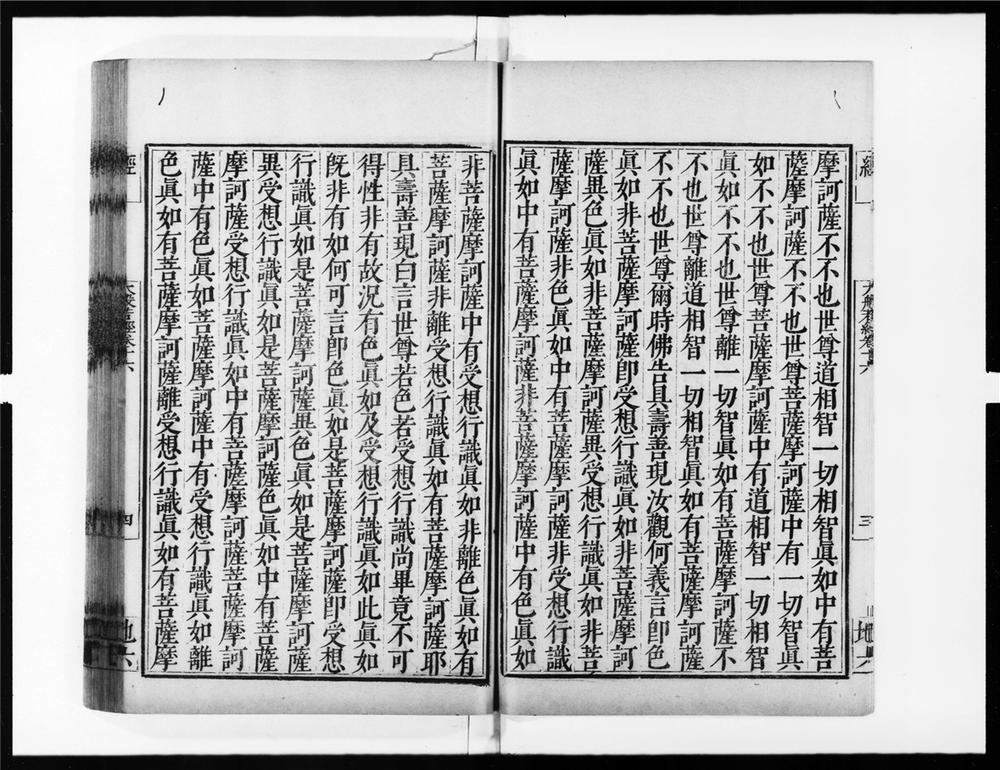 摩訶薩不不也世尊道相智一切相智眞如中有菩
薩摩訶薩不不也世尊菩薩摩訶薩中有一切智眞
如不不也世尊菩薩摩訶薩中有道相智一切相智
眞如不不也世尊離一切智眞如有菩薩摩訶薩不
不也世尊離道相智一切相智眞如有菩薩摩訶薩
不不也世尊爾時佛告具壽善現汝觀何義言卽色
眞如非菩薩摩訶薩卽受想行識眞如非菩薩摩訶
薩異色眞如非菩薩摩訶薩異受想行識眞如非菩
薩摩訶薩非色眞如中有菩薩摩訶薩非受想行識
眞如中有菩薩摩訶薩非菩薩摩訶薩中有色眞如
非菩薩摩訶薩中有受想行識眞如非離色眞如有
菩薩摩訶薩非離受想行識眞如有菩薩摩訶薩耶
具壽善現白言世尊若色若受想行識尚畢竟不可
得性非有故況有色眞如及受想行識眞如此眞如
旣非有如何可言卽色眞如是菩薩摩訶薩卽受想
行識眞如是菩薩摩訶薩異色眞如是菩薩摩訶薩
異受想行識眞如是菩薩摩訶薩色眞如中有菩薩
摩訶薩受想行識眞如中有菩薩摩訶薩菩薩摩訶
薩中有色眞如菩薩摩訶薩中有受想行識眞如離
色眞如有菩薩摩訶薩離受想行識眞如有菩薩摩
經
四
地六